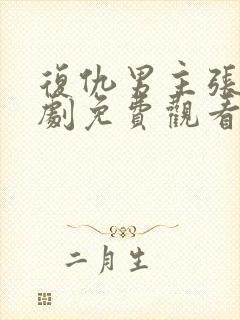 復仇男主張
劇免費觀看
二月生